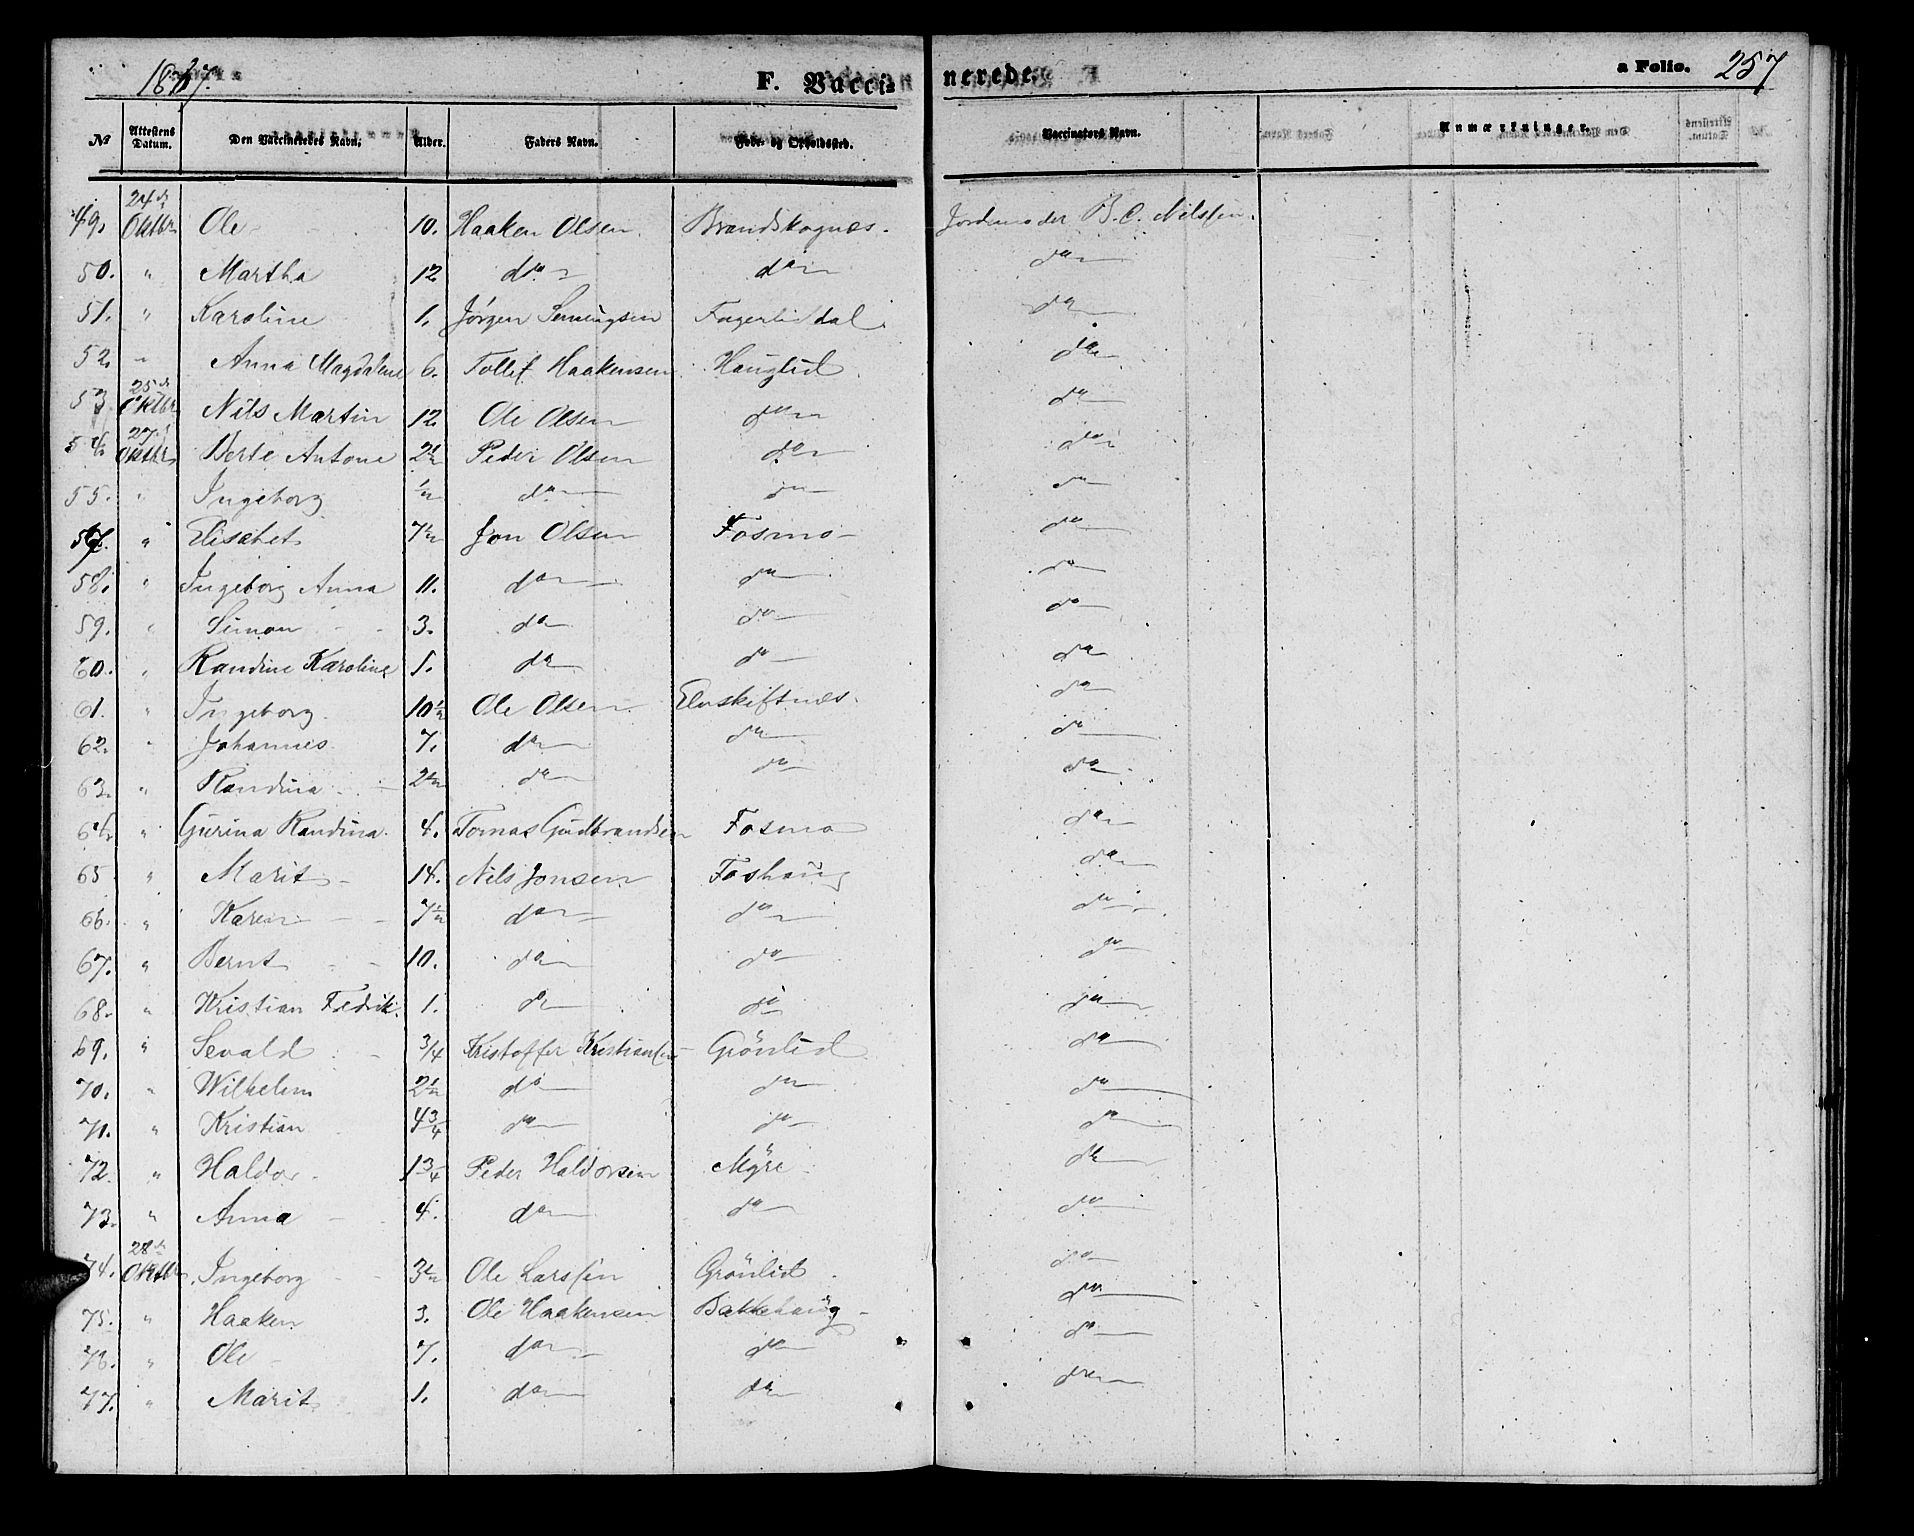 1867. F. Vacci- nerede. a Folio. 257
No Attestens Datum. Den Vaccineredes Navn. Alder. Faders Navn. Føde- og Opholdssted. Vaccinators Navn. Anmærkninger.
49. 24de Oktbr Ole 10. Haaken Olsen Brandskognæs. Jordemoder B. C. Nilssen.
50. " Martha 12 do do do
51. " Karoline 1. Jörgen Semingsen Fagerliddal do
52. " Anna Magdalene 6. Tollef Haakensen Hauglid do
53 25de Oktbr Nils Martin 12 Ole Olsen do do
54. 27de Oktbr Berte Antone 2½ Peder Olsen do do
55. " Ingeborg ½ do do do
57. " Elisabet 7½ Jon Olsen Fosmo do
58. " Ingeborg Anna 11. do do do
59. " Simon 3. do do do
60. " Randine Karoline 1. do do do
61. " Ingeborg 10½ Ole Olsen Elvskiftnæs. do
62. " Johannes 7. do do do
63. " Randina 2½ do do do
64. " Gurina Randina. 4. Tomas Gudbrandsen Fosmo do
65 " Marit 14. Nils Jonsen Foshaug do
66. " Karen 7½ do do do
67. " Bernt 10. do do do
68. " Kristian Fedrik. 1. do do do
69. " Sevald 3/4 Kristoffer Kristiansen Grönlid do
70. " Wilhelm 2½ do do do
71. " Kristian 4¾ do do do
72. " Haldor 1¾ Peder Haldorsen Myre do
73. " Anna 4. do do do
74. 28de Oktbr Ingeborg 3½ Ole Larssen Grönlid do
75. " Haaken 3. Ole Haakensen Bakkehaug do
76. " Ole 7. do do do
77. " Marit 1. do do do